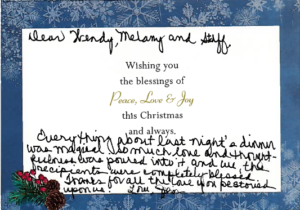 Dear Wendy, Melany and Staff,
Wishing you
the blessings of
Peace, Love & Joy
this Christmas
and always.
Everything about last night's dinner
was magical. So much love and thought-
fulness was poured into it and we the
recipients were completely blessed.
Thanks for all the love upon
upon us! Love